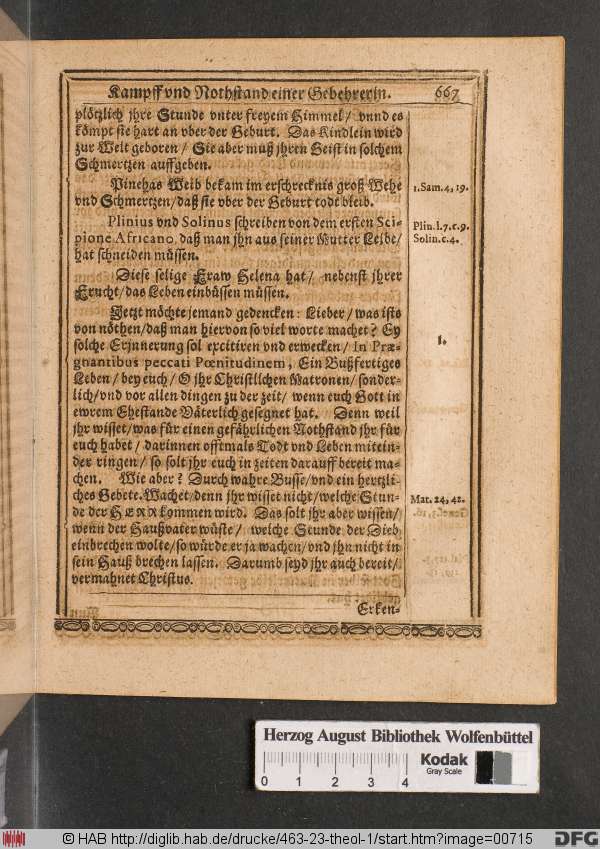 Kampff vnd Nothstand einer Gebehrerin. 667
plötzlich jhre Stunde vnter freyem Himmel / vnnd es
kömpt sie hart an vber der Geburt. Das Kindlein wird
zur Welt geboren / Sie aber muß jhren Geist in solchem
Schmertzen auffgeben.
Pinehas Weib bekam im erschrecknis groß Wehe
vnd Schmertzen / daß sie vber der Geburt todt bleib.
1. Sam. 4, 19.
Plinius vnd Solinus schreiben von dem ersten Sci-
pione Africano, daß man jhn aus seiner Mutter Leibe /
hat schneiden müssen.
Plin. l. 7. c. 9.
Solin. c. 4.
Diese selige Fraw Helena hat / nebenst jhrer
Frucht / das Leben einbüssen müssen.
Jetzt möchte jemand gedencken: Lieber / was ists
von nöthen / daß man hiervon so viel worte machet? Ey
solche Erjnnerung sol excitiren vnd erwecken / In Præ-
gnantibus peccati Pœnitudinem, Ein Bußfertiges
Leben / bey euch / O jhr Christlichen Matronen / sonder-
lich / vnd vor allen dingen zu der zeit / wenn euch Gott in
ewrem Ehestande Väterlich gesegnet hat. Denn weil
jhr wisset / was für einen gefährlichen Nothstand jhr für
euch habet / darinnen offtmals Todt vnd Leben mitein-
der ringen / so solt jhr euch in zeiten darauff bereit ma-
chen. Wie aber? Durch wahre Busse / vnd ein hertzli-
ches Gebete. Wachet / denn jhr wisset nicht / welche Stun-
de der HERR kommen wird. Das solt jhr aber wissen /
wenn der Haußvater wüste / welche Stunde der Dieb
einbrechen wolte / so würde er ja wachen / vnd jhn nicht in
sein Hauß brechen lassen. Darumb seyd jhr auch bereit /
vermahnet Christus.
I.
Mat. 24, 42.
Erken-
Herzog August Bibliothek Wolfenbüttel
0 1 2 3 4
Kodak
Gray Scale
© HAB http://diglib.hab.de/drucke/463-23-theol-1/start.htm?image=00715
DFG